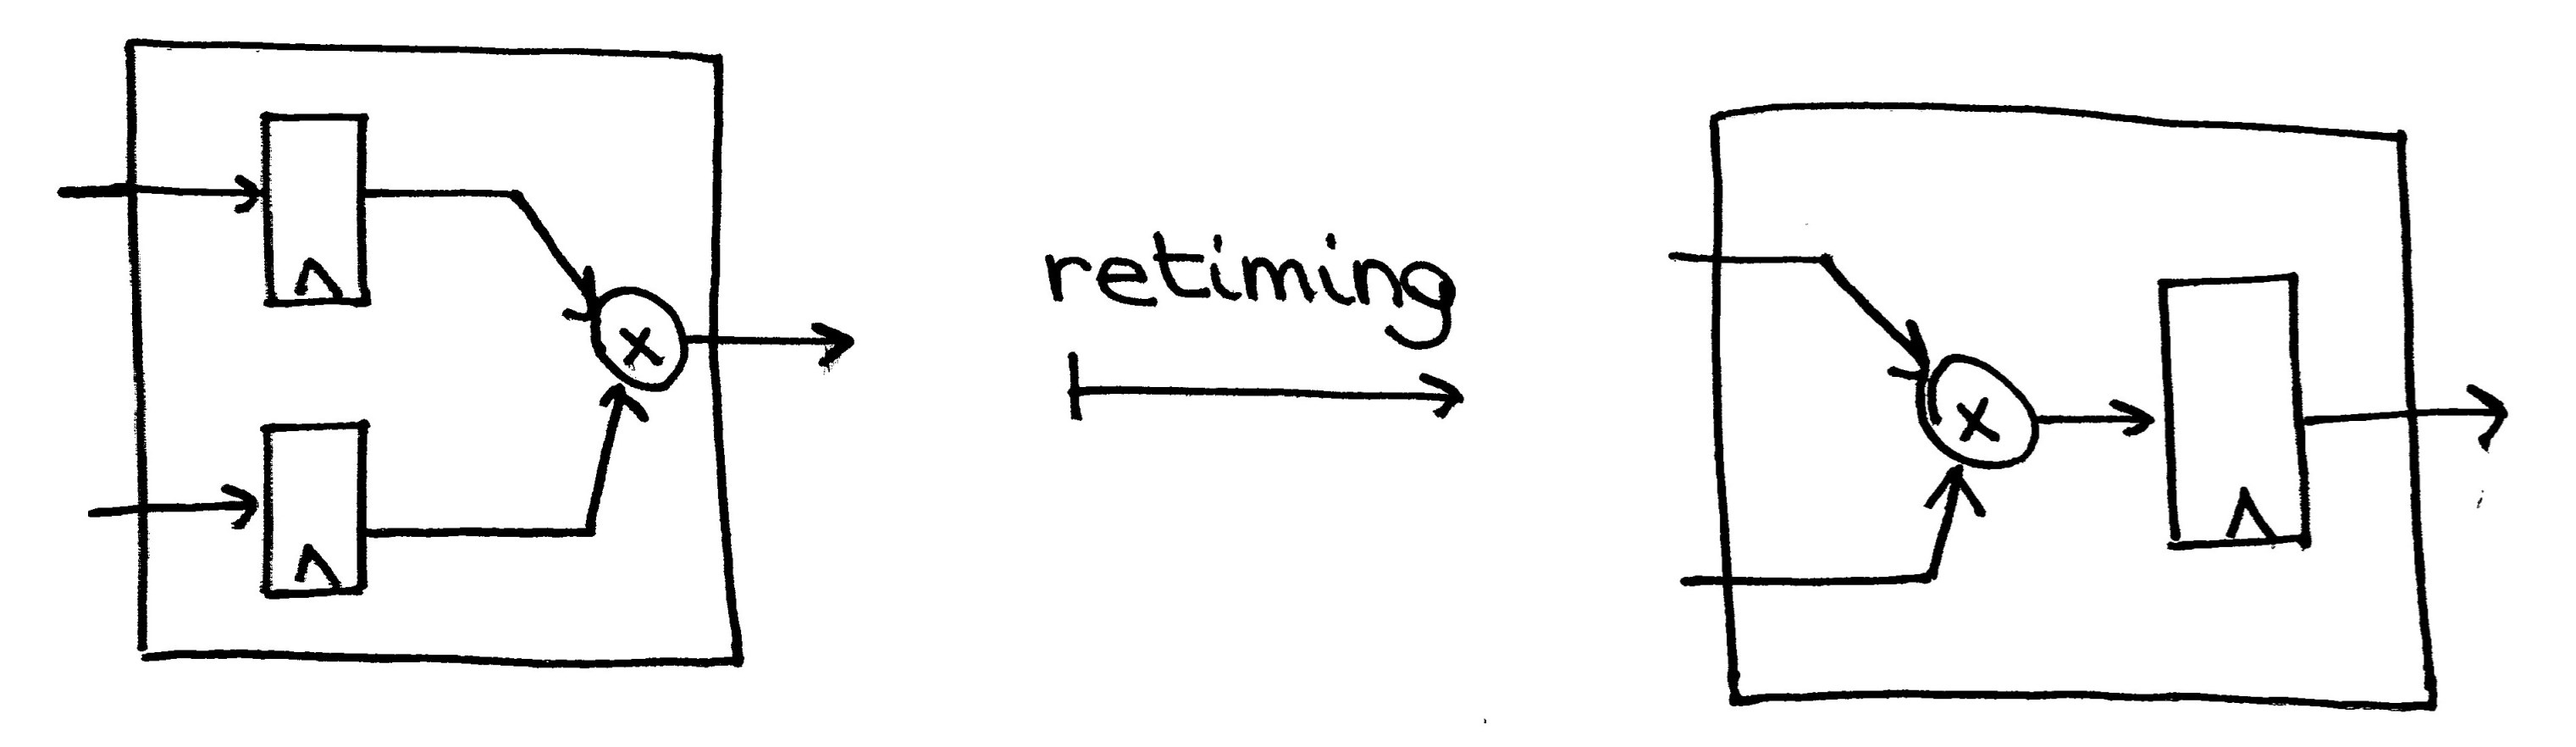 ×
retiming
×